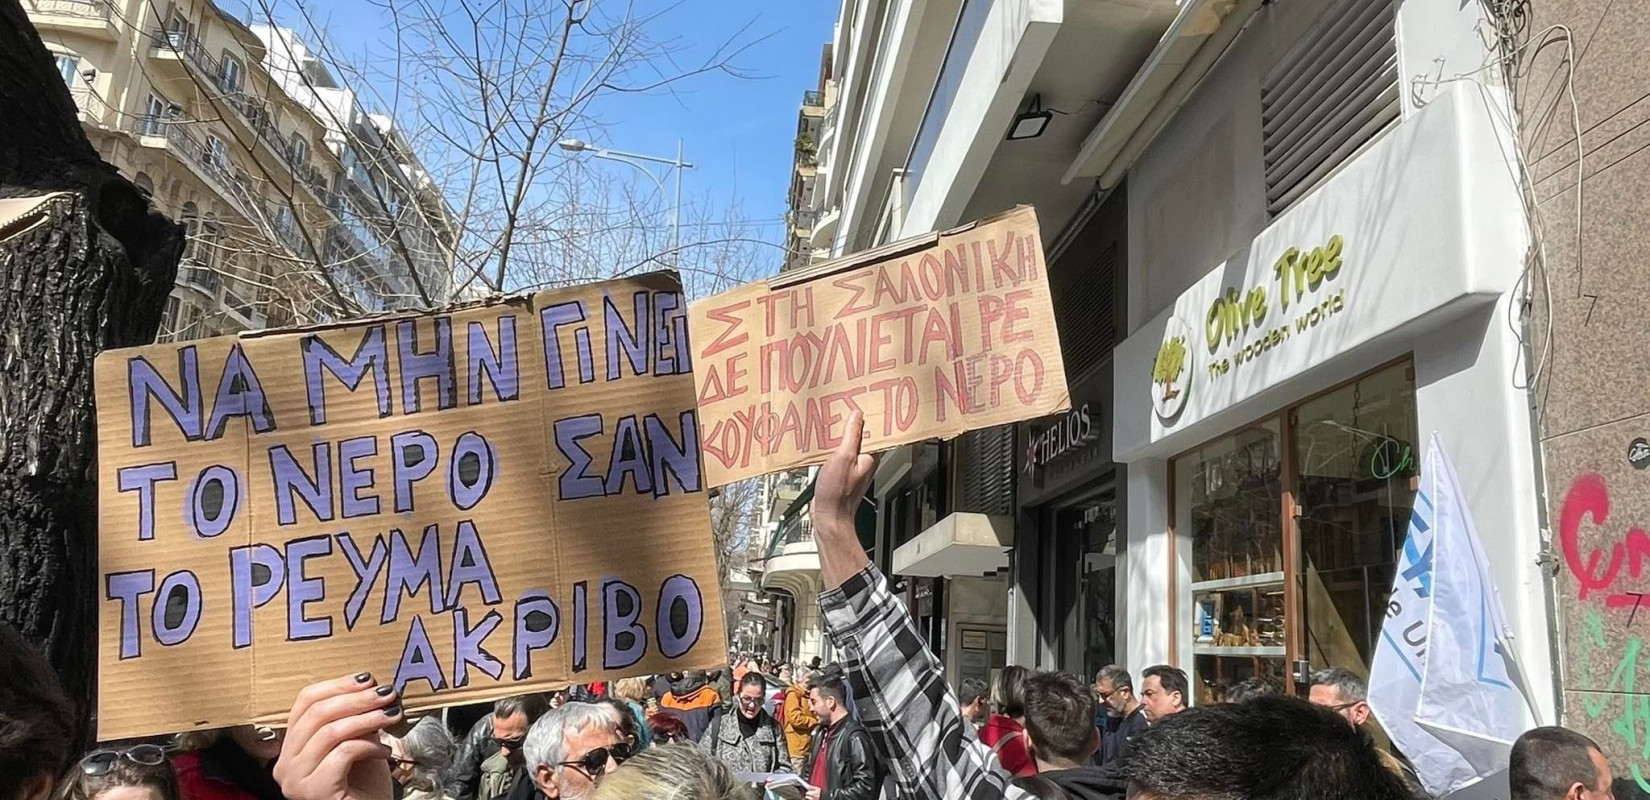 ΝΑ ΜΗΝ ΓΙΝΕΙ
ΤΟ ΝΕΡΟ ΣΑΝ
ΤΟ ΡΕΥΜΑ
ΑΚΡΙΒΟ
ΣΤΗ ΣΑΛΟΝΙΚΗ
ΔΕ ΠΟΥΛΙΕΤΑΙ ΡΕ
ΚΟΥΦΑΛΕΣ ΤΟ ΝΕΡΟ
HELIOS
Olive Tree
The wooden world